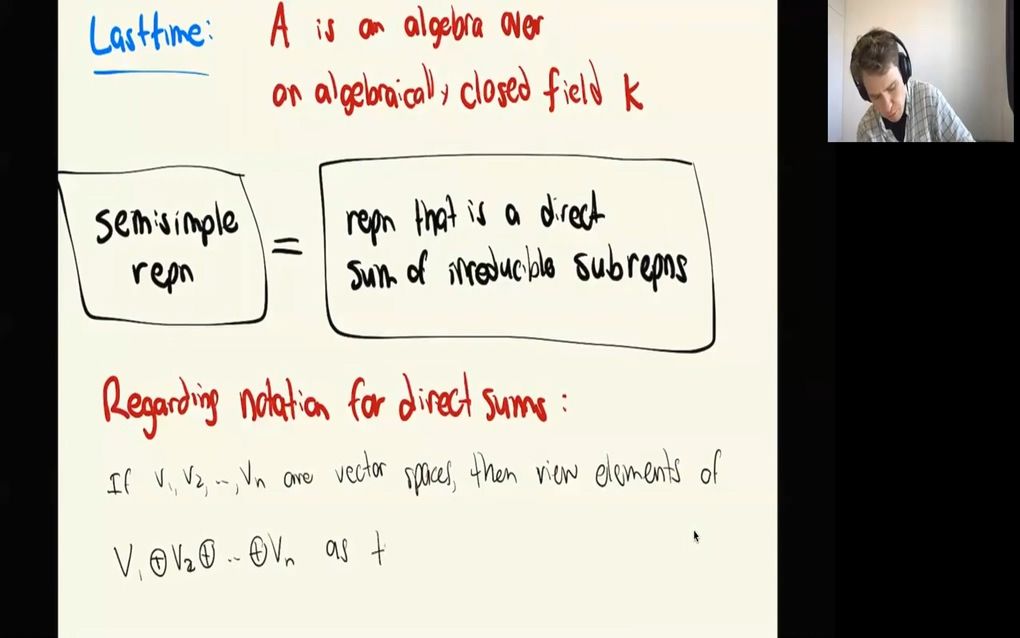 Last time: A is an algebra over
an algebraically closed field K
semisimple
repn
=
repn that is a direct
sum of irreducible subrepns
Regarding notation for direct sums:
If V₁, V₂, .., Vn are vector spaces, then view elements of
V₁⊕V₂⊕..⊕Vn as t